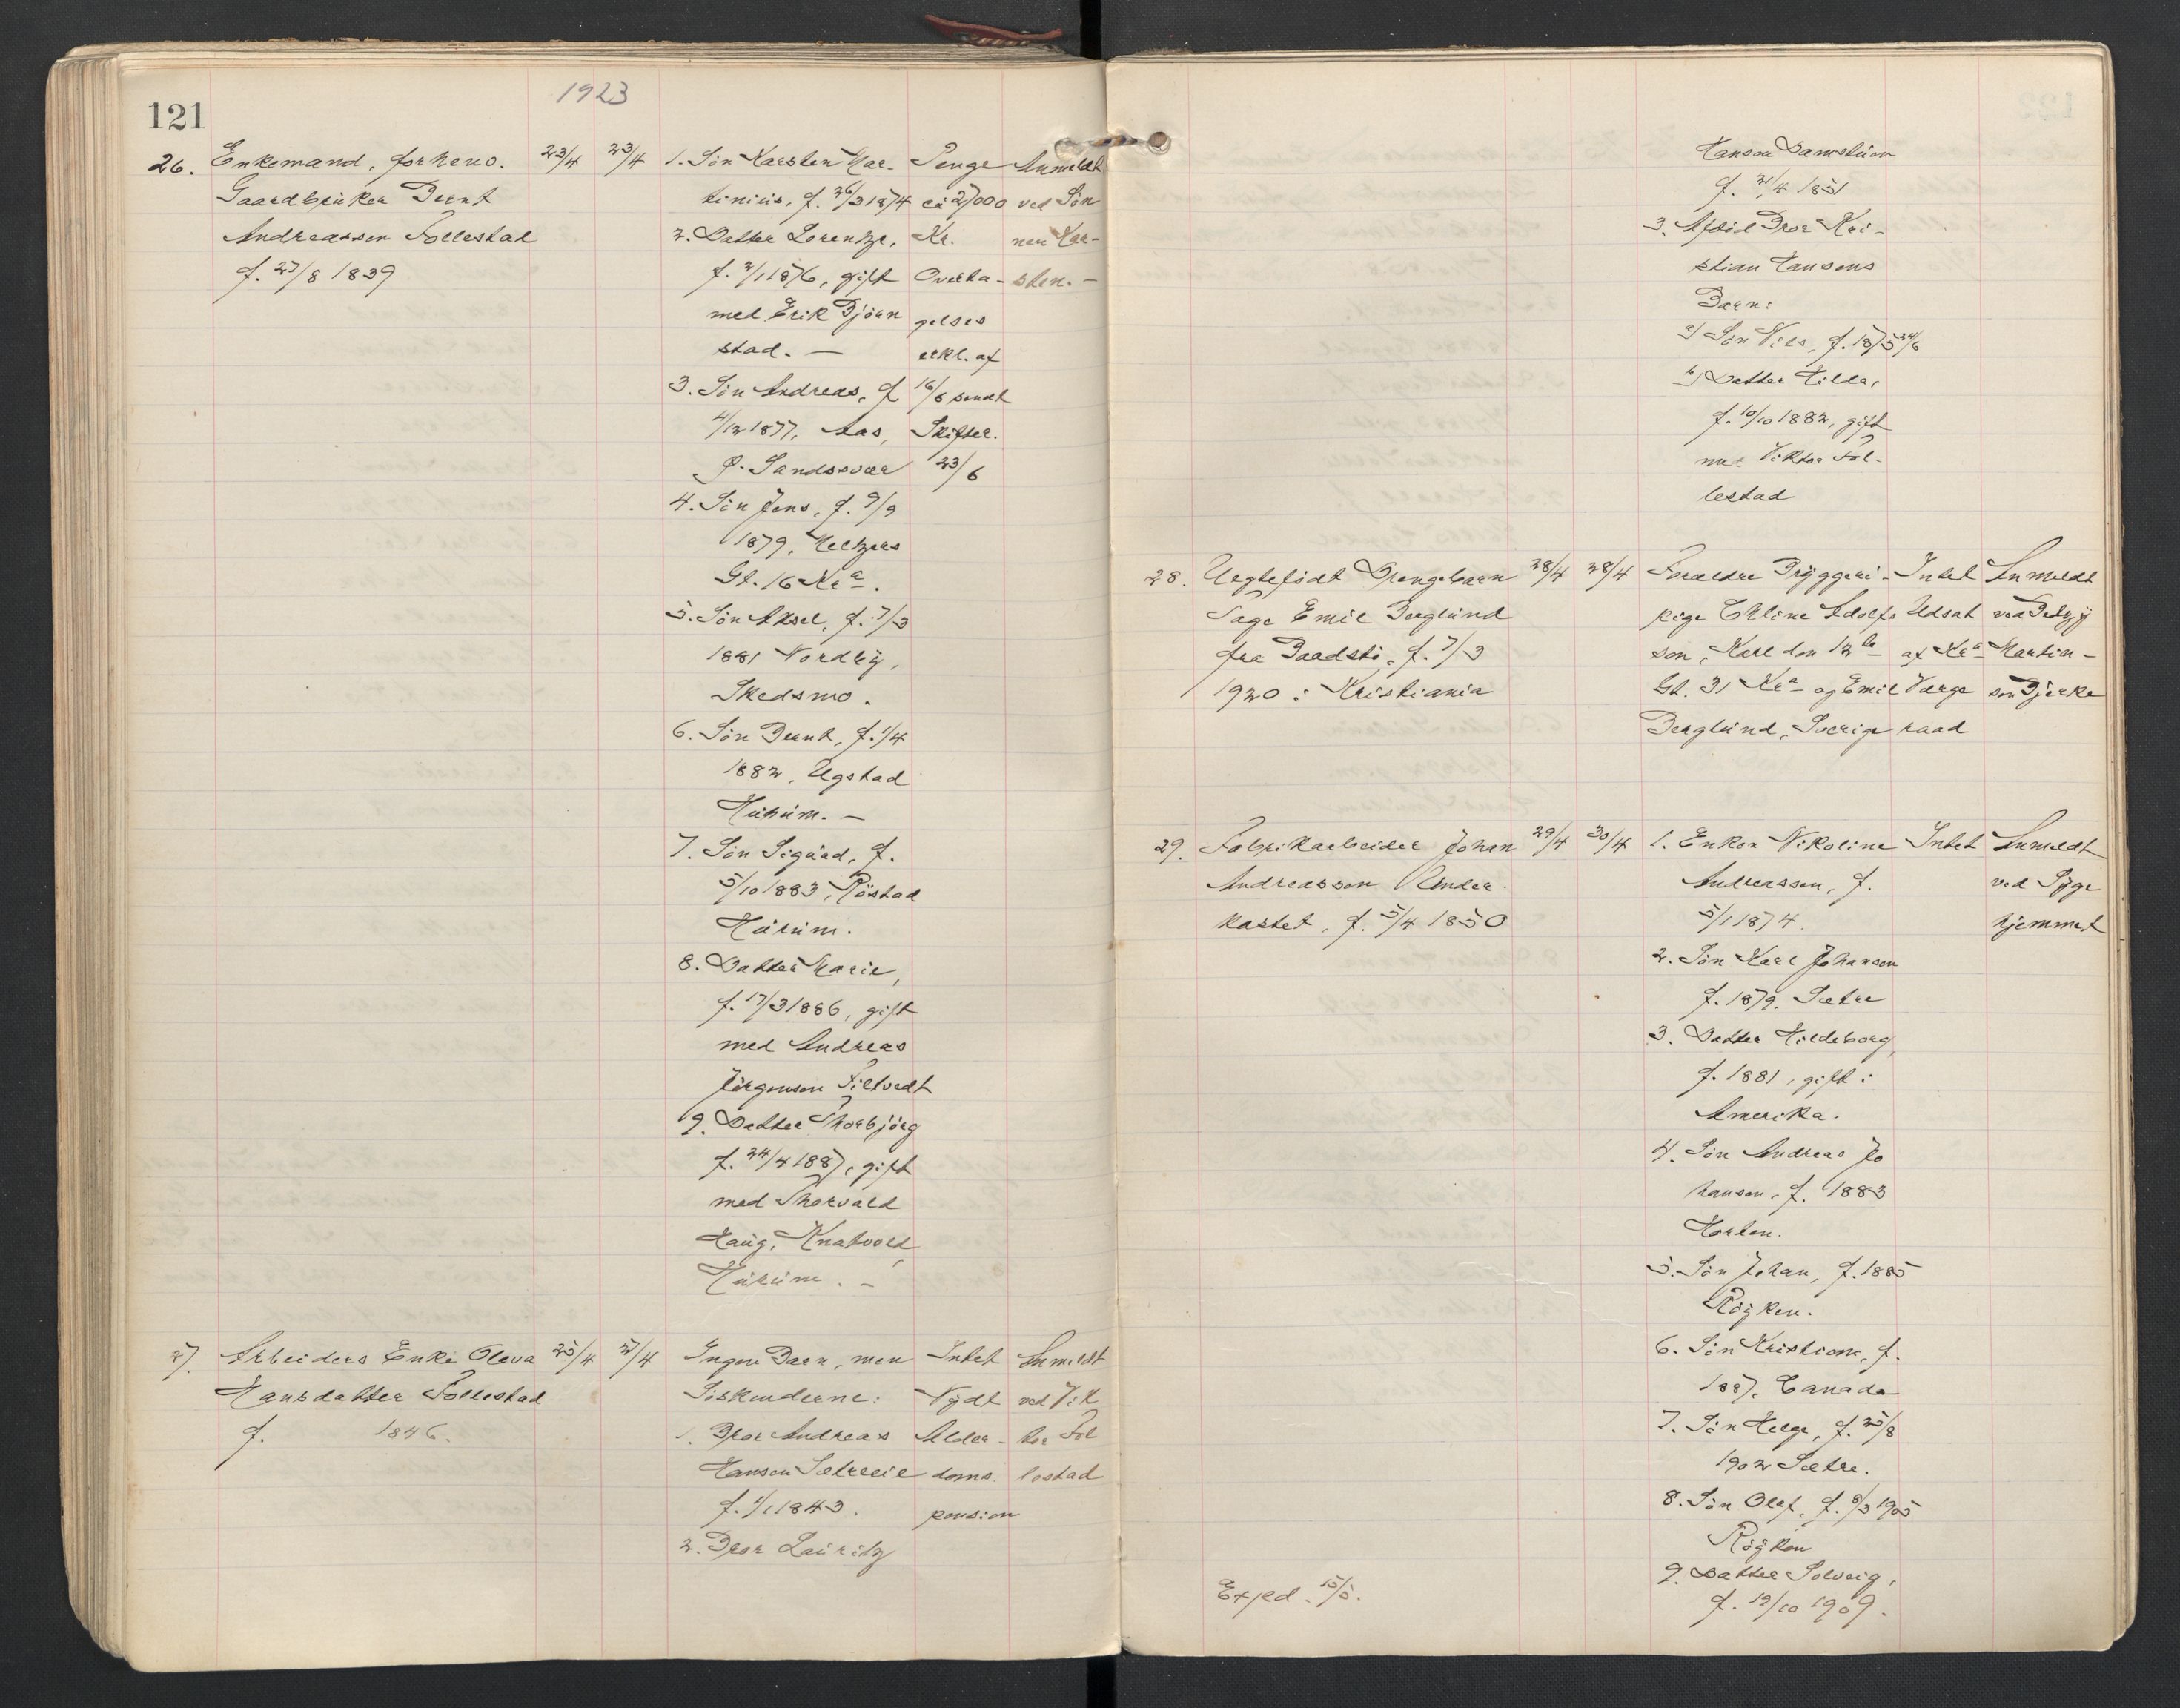 1923
121
26. Enkemand, forhenv. 23/4 23/4
Gaardbruker Bernt
Andreassen Follestad
f. 27/8 1839
1. Søn Karsten Mar-
tinius, f. 26/3 1874
2. Datter Lorentze,
f. 2/1 1876, gift
med Erik Bjørn
stad. —
3. Søn Andreas, f
4/12 1877, Aas,
Ø. Sandsvær
4. Søn Jens, f. 9/9
1879, Meltzers
Gt. 16 Kra.
5. Søn Aksel, f. 7/3
1881 Nordby,
Skedsmo.
6. Søn Bernt, f. 1/4
1882, Ugstad
Hurum. —
7. Søn Sigurd, f.
5/10 1883, Røstad
Hurum.
8. Datter Marie,
f. 17/3 1886, gift
med Andreas
Jørgensen Filtvedt
9. Datter Thorbjørg
f. 24/4 1887, gift
med Thorvald
Haug, Knatvold,
Hurum. —
Penge
ca 27000
Kr.
Overta-
gelses
erkl. af
16/6 sendt
Skifter.
23/6
Anmeldt
ved Søn
nen Kar-
sten. —
27. Arbeiders Enke Oleva 25/4 27/4
Hansdatter Follestad
f. 1846.
Ingen Barn, men
Søskenderne:
1. Bror Andreas
Hansen Sætreeie
f. 1/1 1843.
2. Bror Lauritz
Intet
Nydt
Alder-
doms.
pension
Anmeldt
ved Vik
tor Fol
lestad
Hansen Damstuen
f. 21/4 1851
3. Afdød Bror Kri-
stian Hansens
Barn:
a) Søn Nils, f. 1875 24/6
b) Datter Hilda,
f. 10/10 1882, gift
med Viktor Fol-
lestad
28. Uegtefødt Drengebarn 28/4 28/4
Tage Emil Berglund
fra Baadstø, f. 7/3
1920 i Kristiania
Forældre Bryggeri-
pige Elline Adolfs
son, Karl den 12te
Gt. 31 Kra og Emil
Berglund, Sverige
Intet
Udsat
af Kra
Verge
raad
Anmeldt
ved
Martin-
sen Bjerke
29. Fabrikarbeider Johan 29/4 30/4
Andreassen Under
kastet, f. 5/4 1850
1. Enken Nikoline
Andreassen, f.
5/1 1874.
2. Søn Karl Johansen
f. 1879. Sætre
3. Datter Hildeborg,
f. 1881, gift i
Amerika.
4. Søn Andreas Jo
hansen, f. 1883
Horten.
5. Søn Johan, f. 1885
Røyken.
6. Søn Kristian, f.
1887, Canada
7. Søn Helge, f. 25/8
1902 Sætre.
8. Søn Olaf, f. 8/3 1905
Røyken
9. Datter Solveig,
f. 19/10 1909.
Intet
Anmeldt
ved Syge
hjemmet
Exped. 15/5.